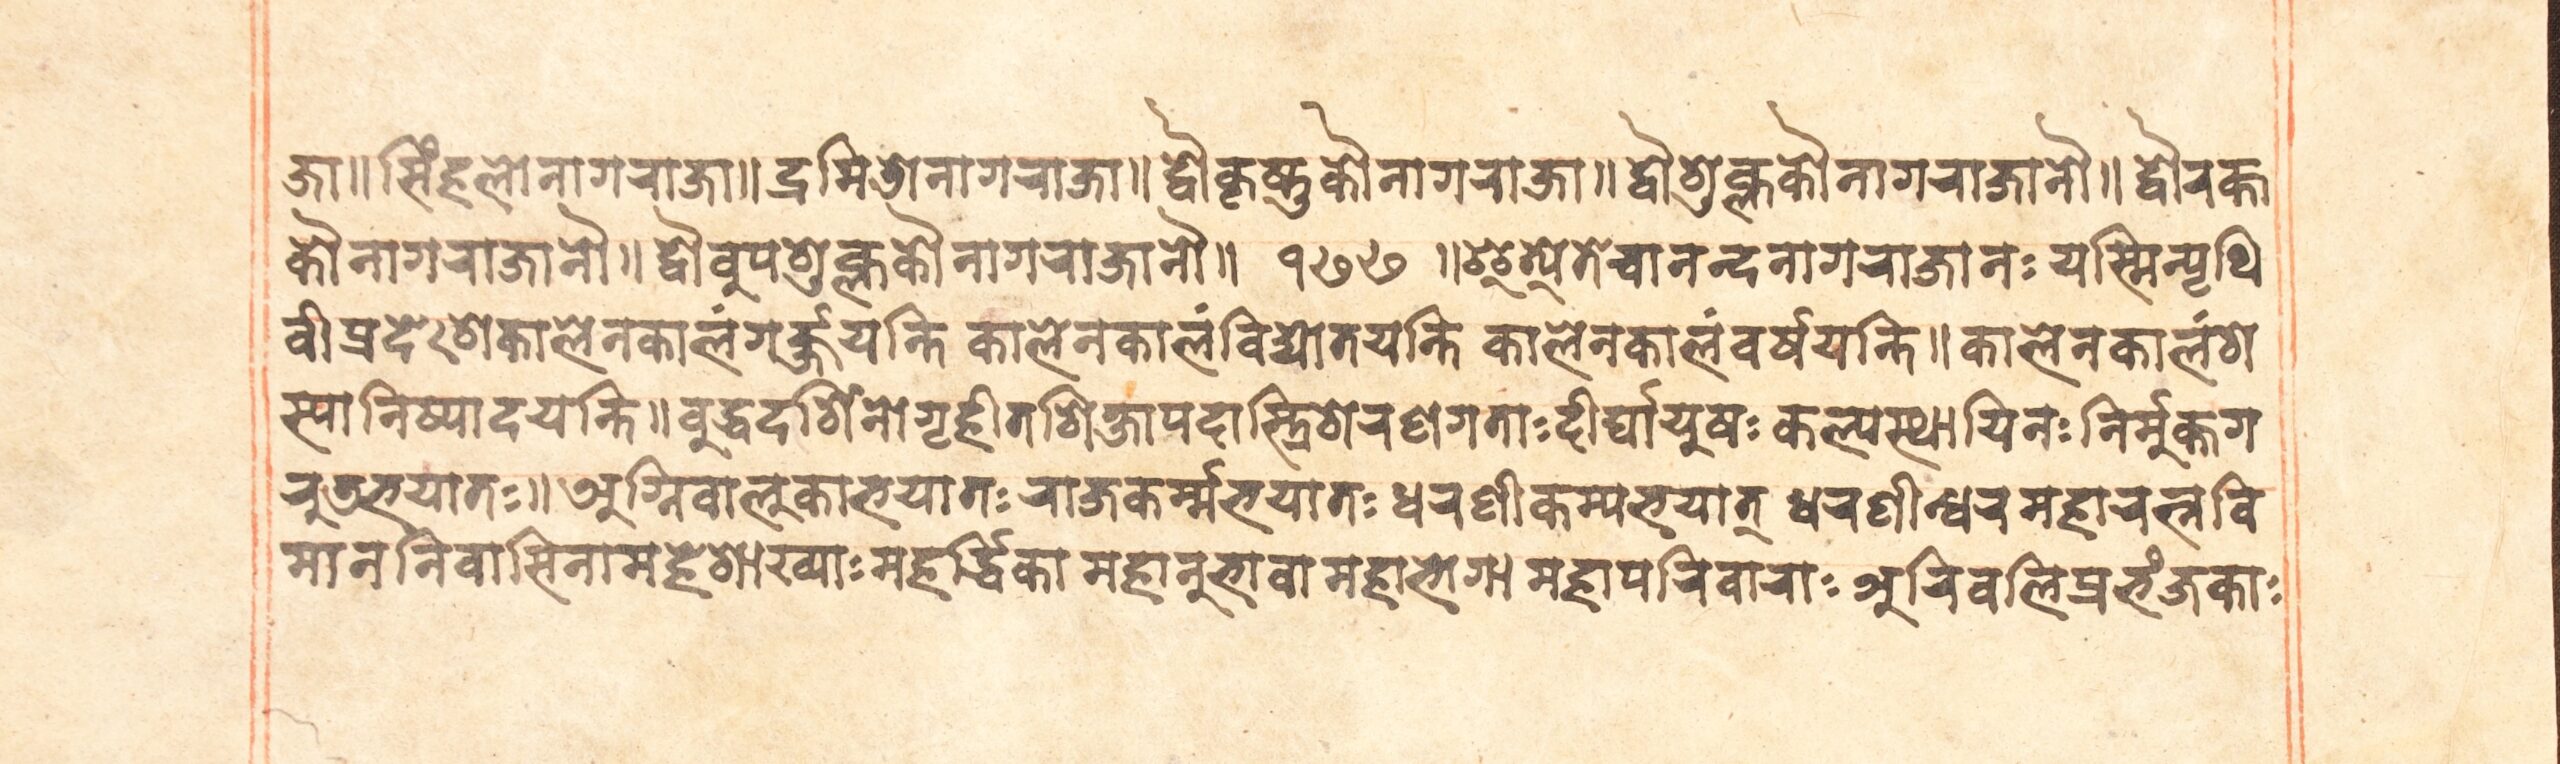 जा॥ सिंहलोनागराजा॥ द्रमिडोनागराजा॥ द्वौकृष्णुकौनागराजा॥ द्वौशुक्लकौनागराजानौ॥ द्वौरक्त
कौनागराजानौ॥ द्वौवुपशुक्लकौनागराजानौ॥ १७७ ॥ इत्येतेचानन्दनागराजानः यस्मिन्पृथि
वीप्रदेशेकालेनकालंगर्ज्जयन्ति कालेनकालंविद्योतयन्ति कालेनकालंवर्षयन्ति॥ कालेनकालंश
स्यानिष्पादयन्ति॥ वुद्धदर्शिनोगृहीतशिक्षापदास्त्रिशरणगताः दीर्घायुषः कल्पस्थायिनः निर्मुक्तग
रुडभयातः॥ अग्निवालुकाभयातः राजकर्म्मभयातः धरणीकम्पभयात् धरणीन्धरमहारत्नवि
माननिवासिनामहेशाख्याः महर्द्धिका महानुभावा महाभोगा महापरिवाराः अरिवलिप्रभंजकाः